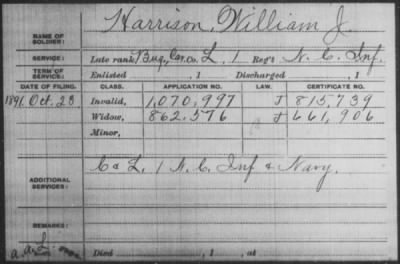 Harrison, William J.
NAME OF SOLDIER:
SERVICE: Late rank Bug, Cor. Co. L, 1 Reg't N. C. Inf.
TERM OF SERVICE: Enlisted , 1 Discharged , 1
DATE OF FILING. CLASS. APPLICATION NO. LAW. CERTIFICATE NO.
1891 Oct. 23 Invalid, 1,070,997 J 815,739
Widow, 862,576 J 661,906
Minor,
C & L, 1 N. C. Inf & Navy.
ADDITIONAL SERVICES:
REMARKS:
Died , 1 , at